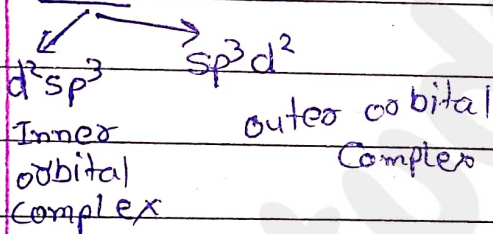 d²sp³
Inner
orbital
complex
sp³d²
outer orbital
Complex